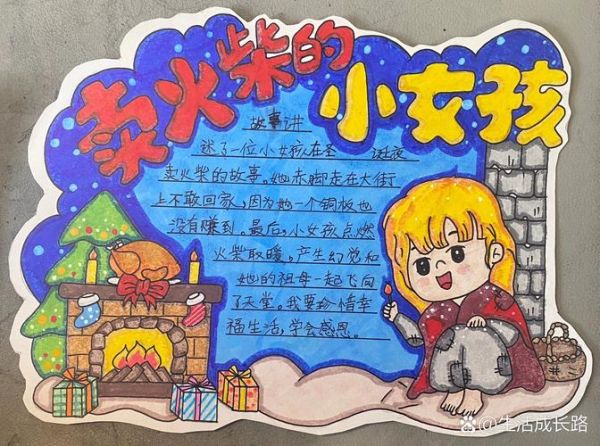 卖火柴的
小女孩
故事讲
述了一位小女孩在圣 诞夜
卖火柴的故事。她赤脚走在大街
上不敢回家,因为她一个铜板也
没有赚到。最后,小女孩点燃
火柴取暖。产生幻觉和
她的祖母一起飞向
了天堂。我要珍惜幸
福生活,学会感恩。
生活成长路